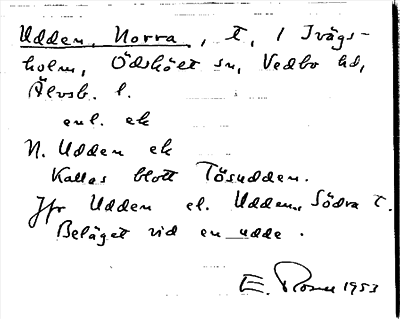 Udden, Norra, t, i Ivägs-
holm, Ödskölt sn, Vedbo hd,
Älvsb. l.
enl. ek
N. Udden ek
Kallas blott Tösudden.
Jfr Udden el. Udden, Södra t.
Beläget vid en udde.
E. Rosen 1953